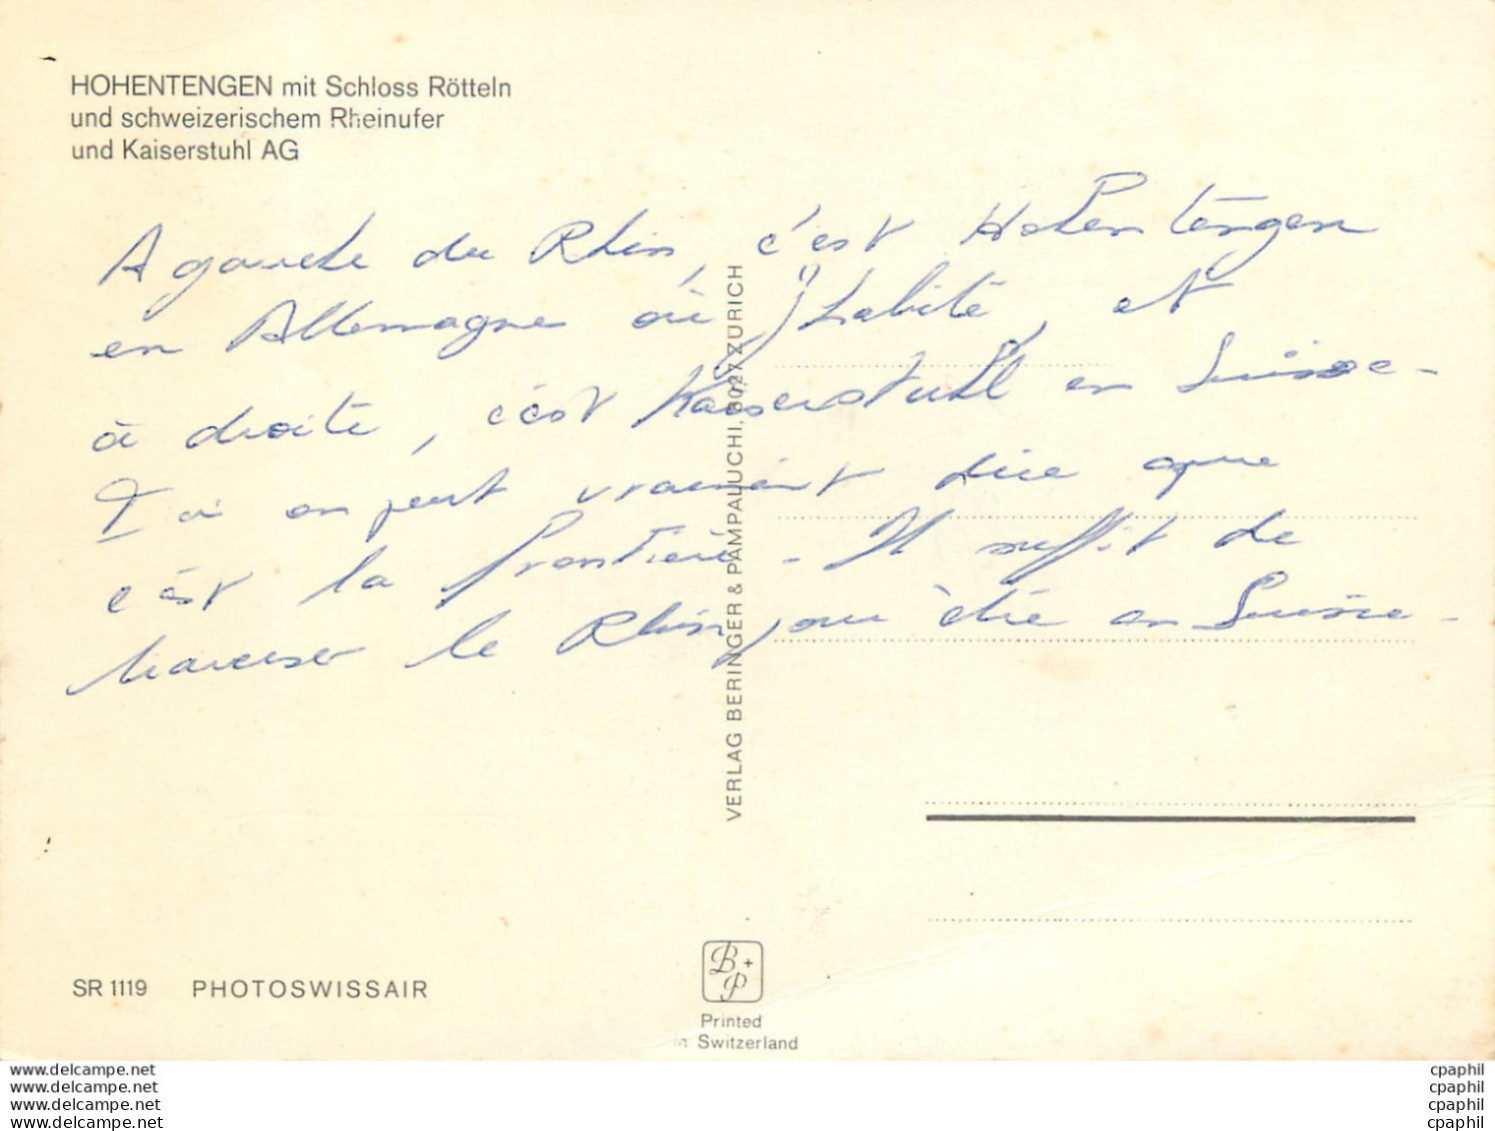 HOHENTENGEN mit Schloss Rötteln
und schweizerischem Rheinufer
und Kaiserstuhl AG
A gauche du Rhin, c'est Hohentengen
en Allemagne où j'habite, et
à droite, c'est Kaiserstuhl en Suisse -
Ici on peut vraiment dire que
c'est la frontière - Il suffit de
traverser le Rhin pour être en Suisse -
VERLAG BERINGER & PAMPALUCHI, 8027 ZURICH
SR 1119 PHOTOSWISSAIR
B+P
Printed
in Switzerland
www.delcampe.net
www.delcampe.net
www.delcampe.net
www.delcampe.net
cpaphil
cpaphil
cpaphil
cpaphil